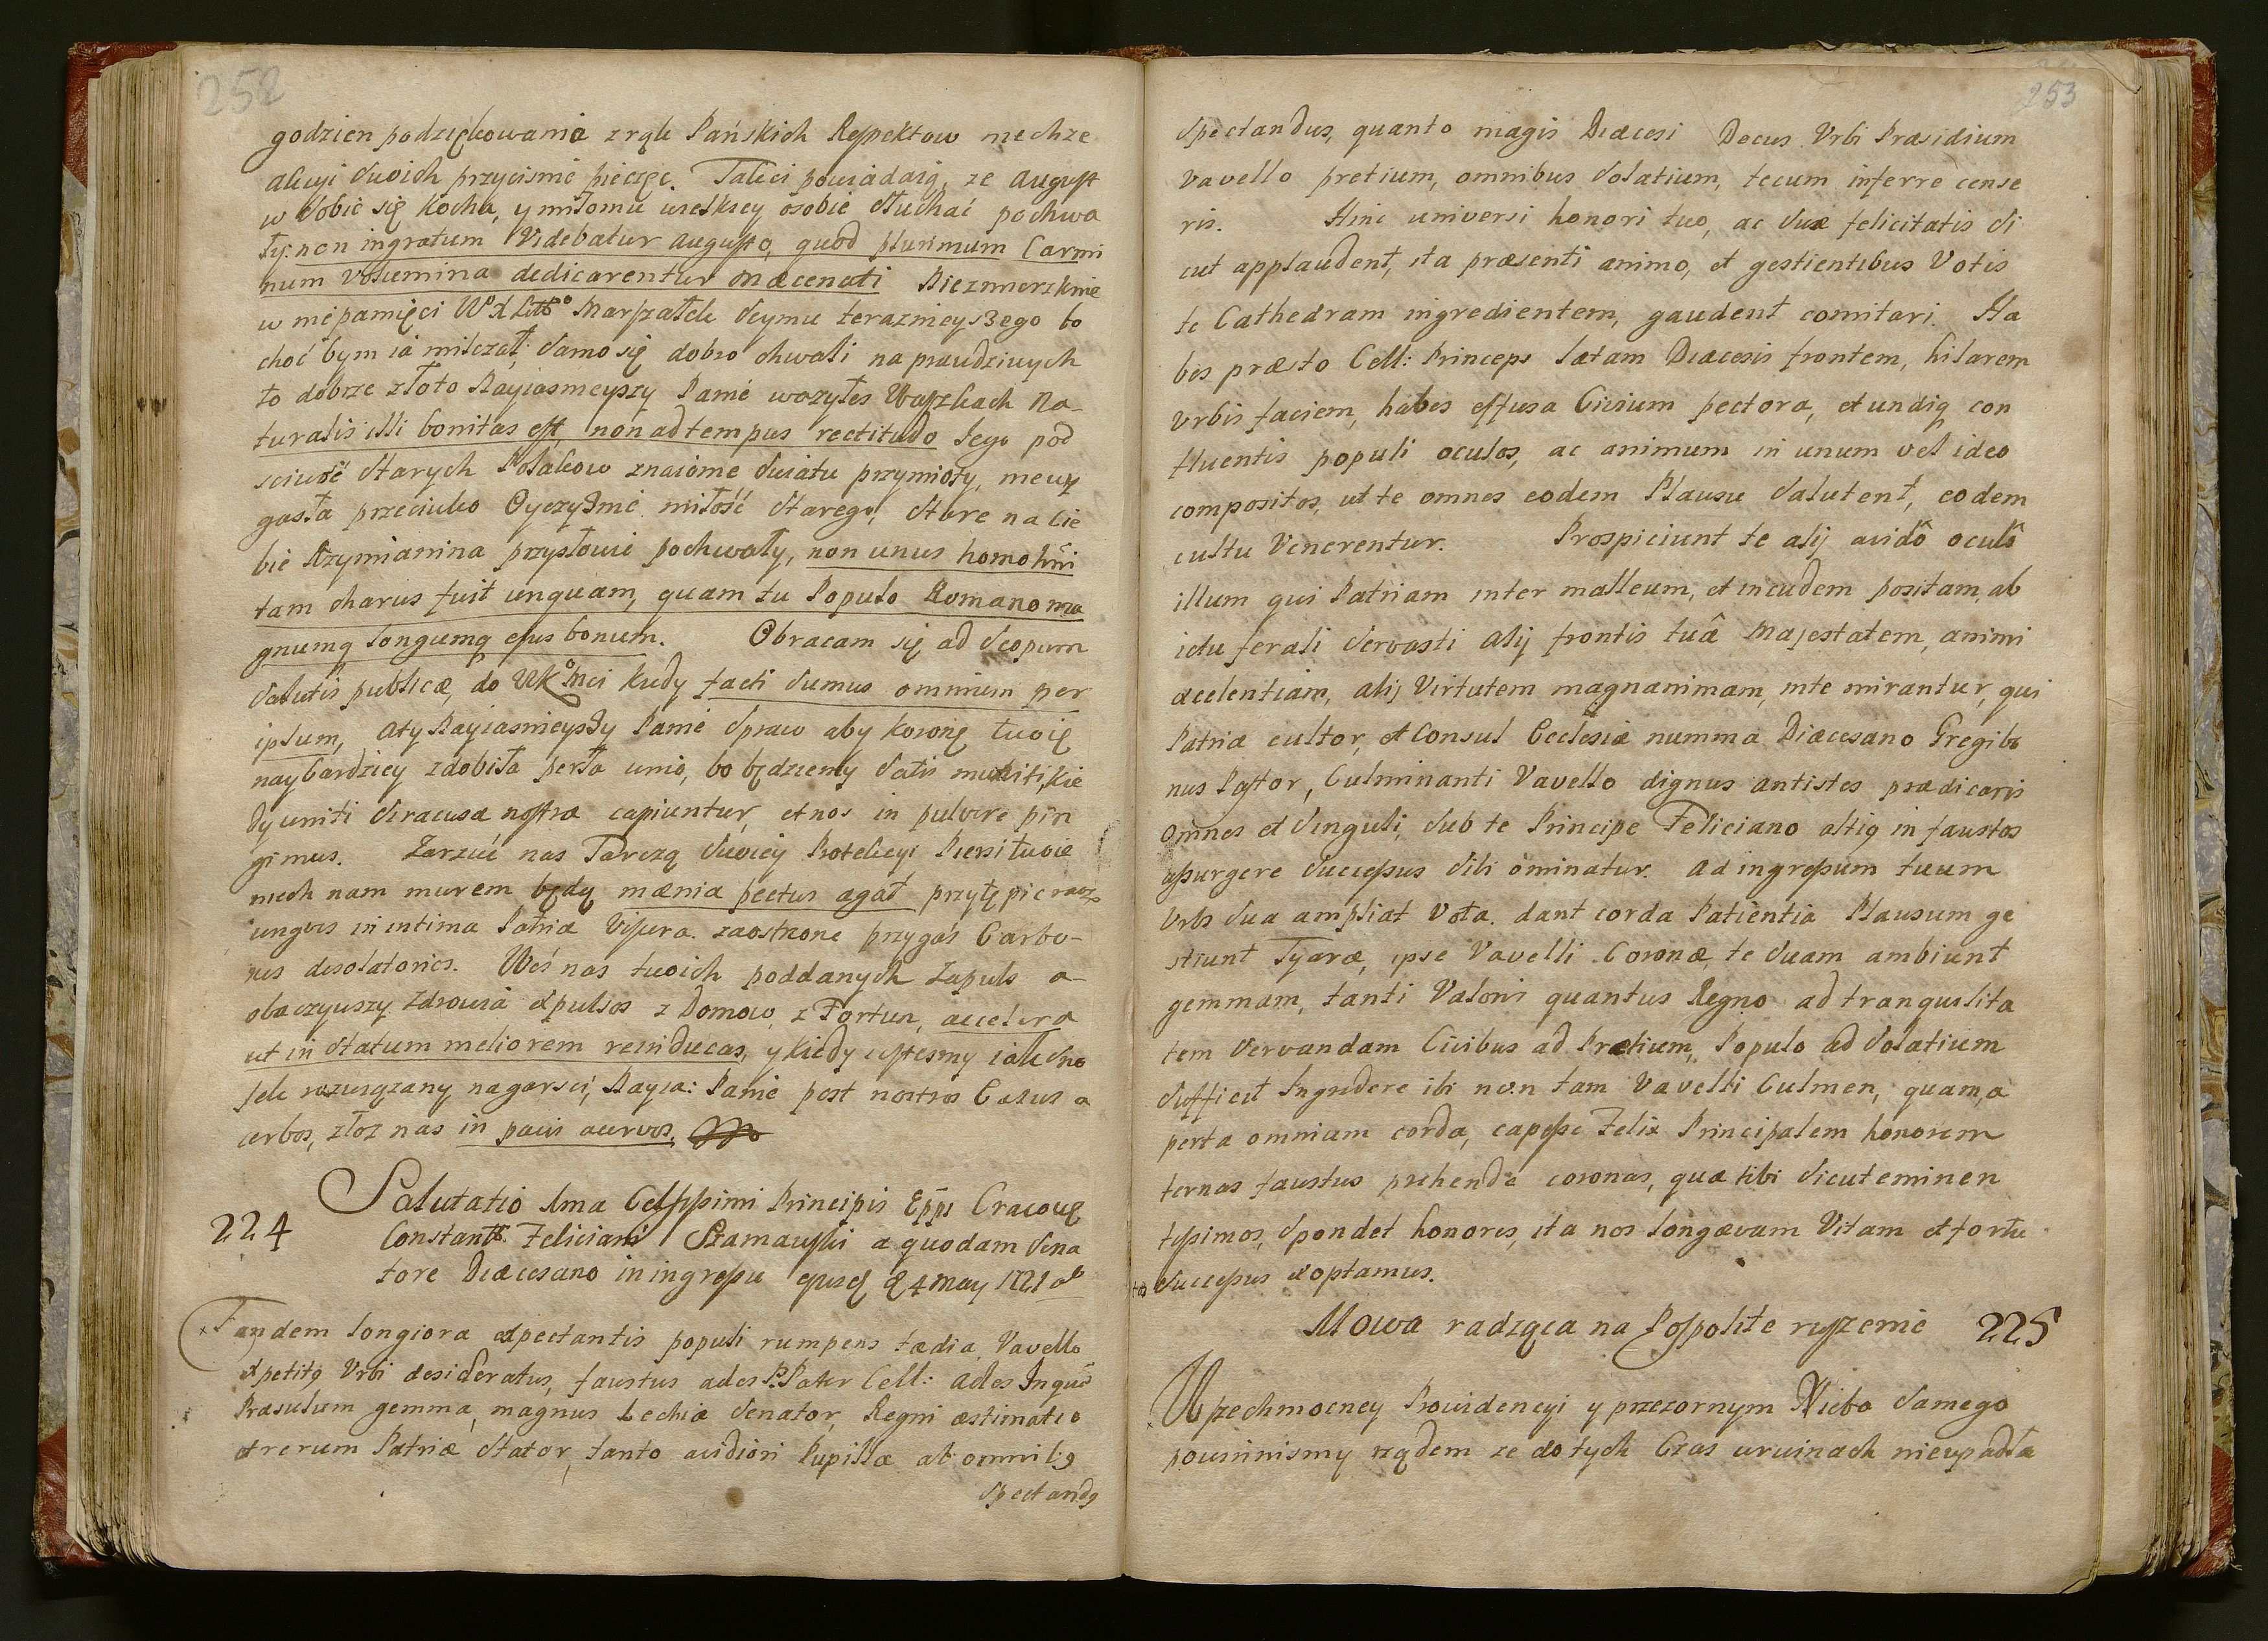 252
godzien podziękowania z rąk Pańskich Respektow niechze
akcyi swoich przycisnie pieczęć. Takci powiadaią, ze August
w sobie się kocha, y miłomu wielkiey osobie słuchać pochwa
ły: non ingratum Videbatur Augusto, quod plurimum Carmi
num Volumina dedicarentur Mæcenati Niezmierzknie
w niepamięci Marszałek Seymu teraznieyszego bo
choć bym ia milczał: samo się dobro chwali na prawdziwych
to dobrze złoto Nayiasnieyszy Panie wazyłes Na-
turalis illi bonitas est, non ad tempus rectitudo Jego pod
sciwość starych Polakow znaiome swiatu przymioty, niewy
gasła przeciwko Oyczyznie miłość starego, stare na cie
bie Rzymianina przysłowie pochwały, non unus homo
tam charus fuit unquam, quam tu Populo Romano ma
gnumq longumq ejus bonum. Obracam się ad scopum
salutis publicæ, do kiedy facti sumus omnium per
ipsum, Aty Nayiasnieyszy Panie spraw aby koronę twoię
naybardziey zdobiła perła unio, bo będziemy satis muniti, kie
dy uniti Siracusæ nostræ capiuntur, et nos in pulvere pin
gimus. Zarzuć nas Tarczą swoiey Protekcyi Piersi twoie
niech nam murem będą mænia pectus agat przytępić racz
ungues in intima Patriæ Viscera zaostrzone przygaś Carbo-
nes desolatorios. Weś nas twoich poddanych
obaczywszy zdrowia expulsos z Domow, z Fortun, accelera
ut in statum meliorem reinducas, y kiedy iestesmy iak sno
pek rozwiązany na garsci, Nayia: Panie post nostros Casus a
cerbos, złoz nas in pacis acervos.
224
Salutatio Ima Celssissimi Principis Epps Cracov
Constant. Feliciani Szaniawski a quodam Sena
tore Diæcesano in ingressu ejusq 4 May 1721
Tandem longiora expectantis populi rumpens tædia, Vavello
expetitq Urbi desideratus, faustus ades P. Pater Cell: Ades Inquā
Præsulum gemma, magnus Lechiæ Senator, Regni æstimatio
et rerum Patriæ Stator, tanto avidiori Pupillæ ab omnibq
spectandq
253
spectandus, quanto magis Diæcesi Decus Urbi Præsidium
Vavello pretium, omnibus solatium, tecum inferre cense
ris. Hinc universi honori tuo, ac suæ felicitatis si
cut applaudent, ita præsenti animo, et gestientibus Votis
te Cathedram ingredientem, gaudent comitari. Ha
bes præsto Cell: Princeps lætam Diæcesis frontem, hilarem
Urbis faciem, habes effusa Civium pectora, et undiq con
fluentis populi oculos, ac animum in unum vel ideo
compositos, ut te omnes eodem Plausu salutent, eodem
cultu Venerentur. Prospiciunt te alij avidô oculô
illum qui Patriam inter malleum, et incudem positam, ab
ictu ferali servasti alij frontis tuâ Majestatem, animi
excelentiam, alij Virtutem magnanimam, in te mirantur, qui
Patriæ cultor, et Consul Ecclesiæ numma Diæcesano Gregi bo
nus Pastor, Culminanti Vavello dignus Antistes prædicaris
omnes et singuli, sub te Principe Feliciano altiq in faustos
assurgere successus sibi ominatur. Ad ingressum tuum
Urbs sua ampliat Vota. dant corda Patientia Plausum ge
stiunt Tyaræ, ipse Vavelli Coronæ, te suam ambiunt
gemmam, tanti Valoris quantus Regno ad tranquilita
tem servandam Civibus ad Prætium, Populo ad solatium
sufficit Ingredere ibi non tam Vavelli Culmen, quam, a
perta omnium corda, capesse Felix Principalem honorem
ternas faustus prehende coronas, quæ tibi sicut eminen
tissimos, spondet honores, ita nos longævam Vitam et fortu
tos successus exoptamus.
Mowa radząca na Pospolite ruszenie 225
Wszechmocney Prowidencyi y przezornym Nieba samego
powinnismy rządem ze do tych Czas urwinach nieupadła